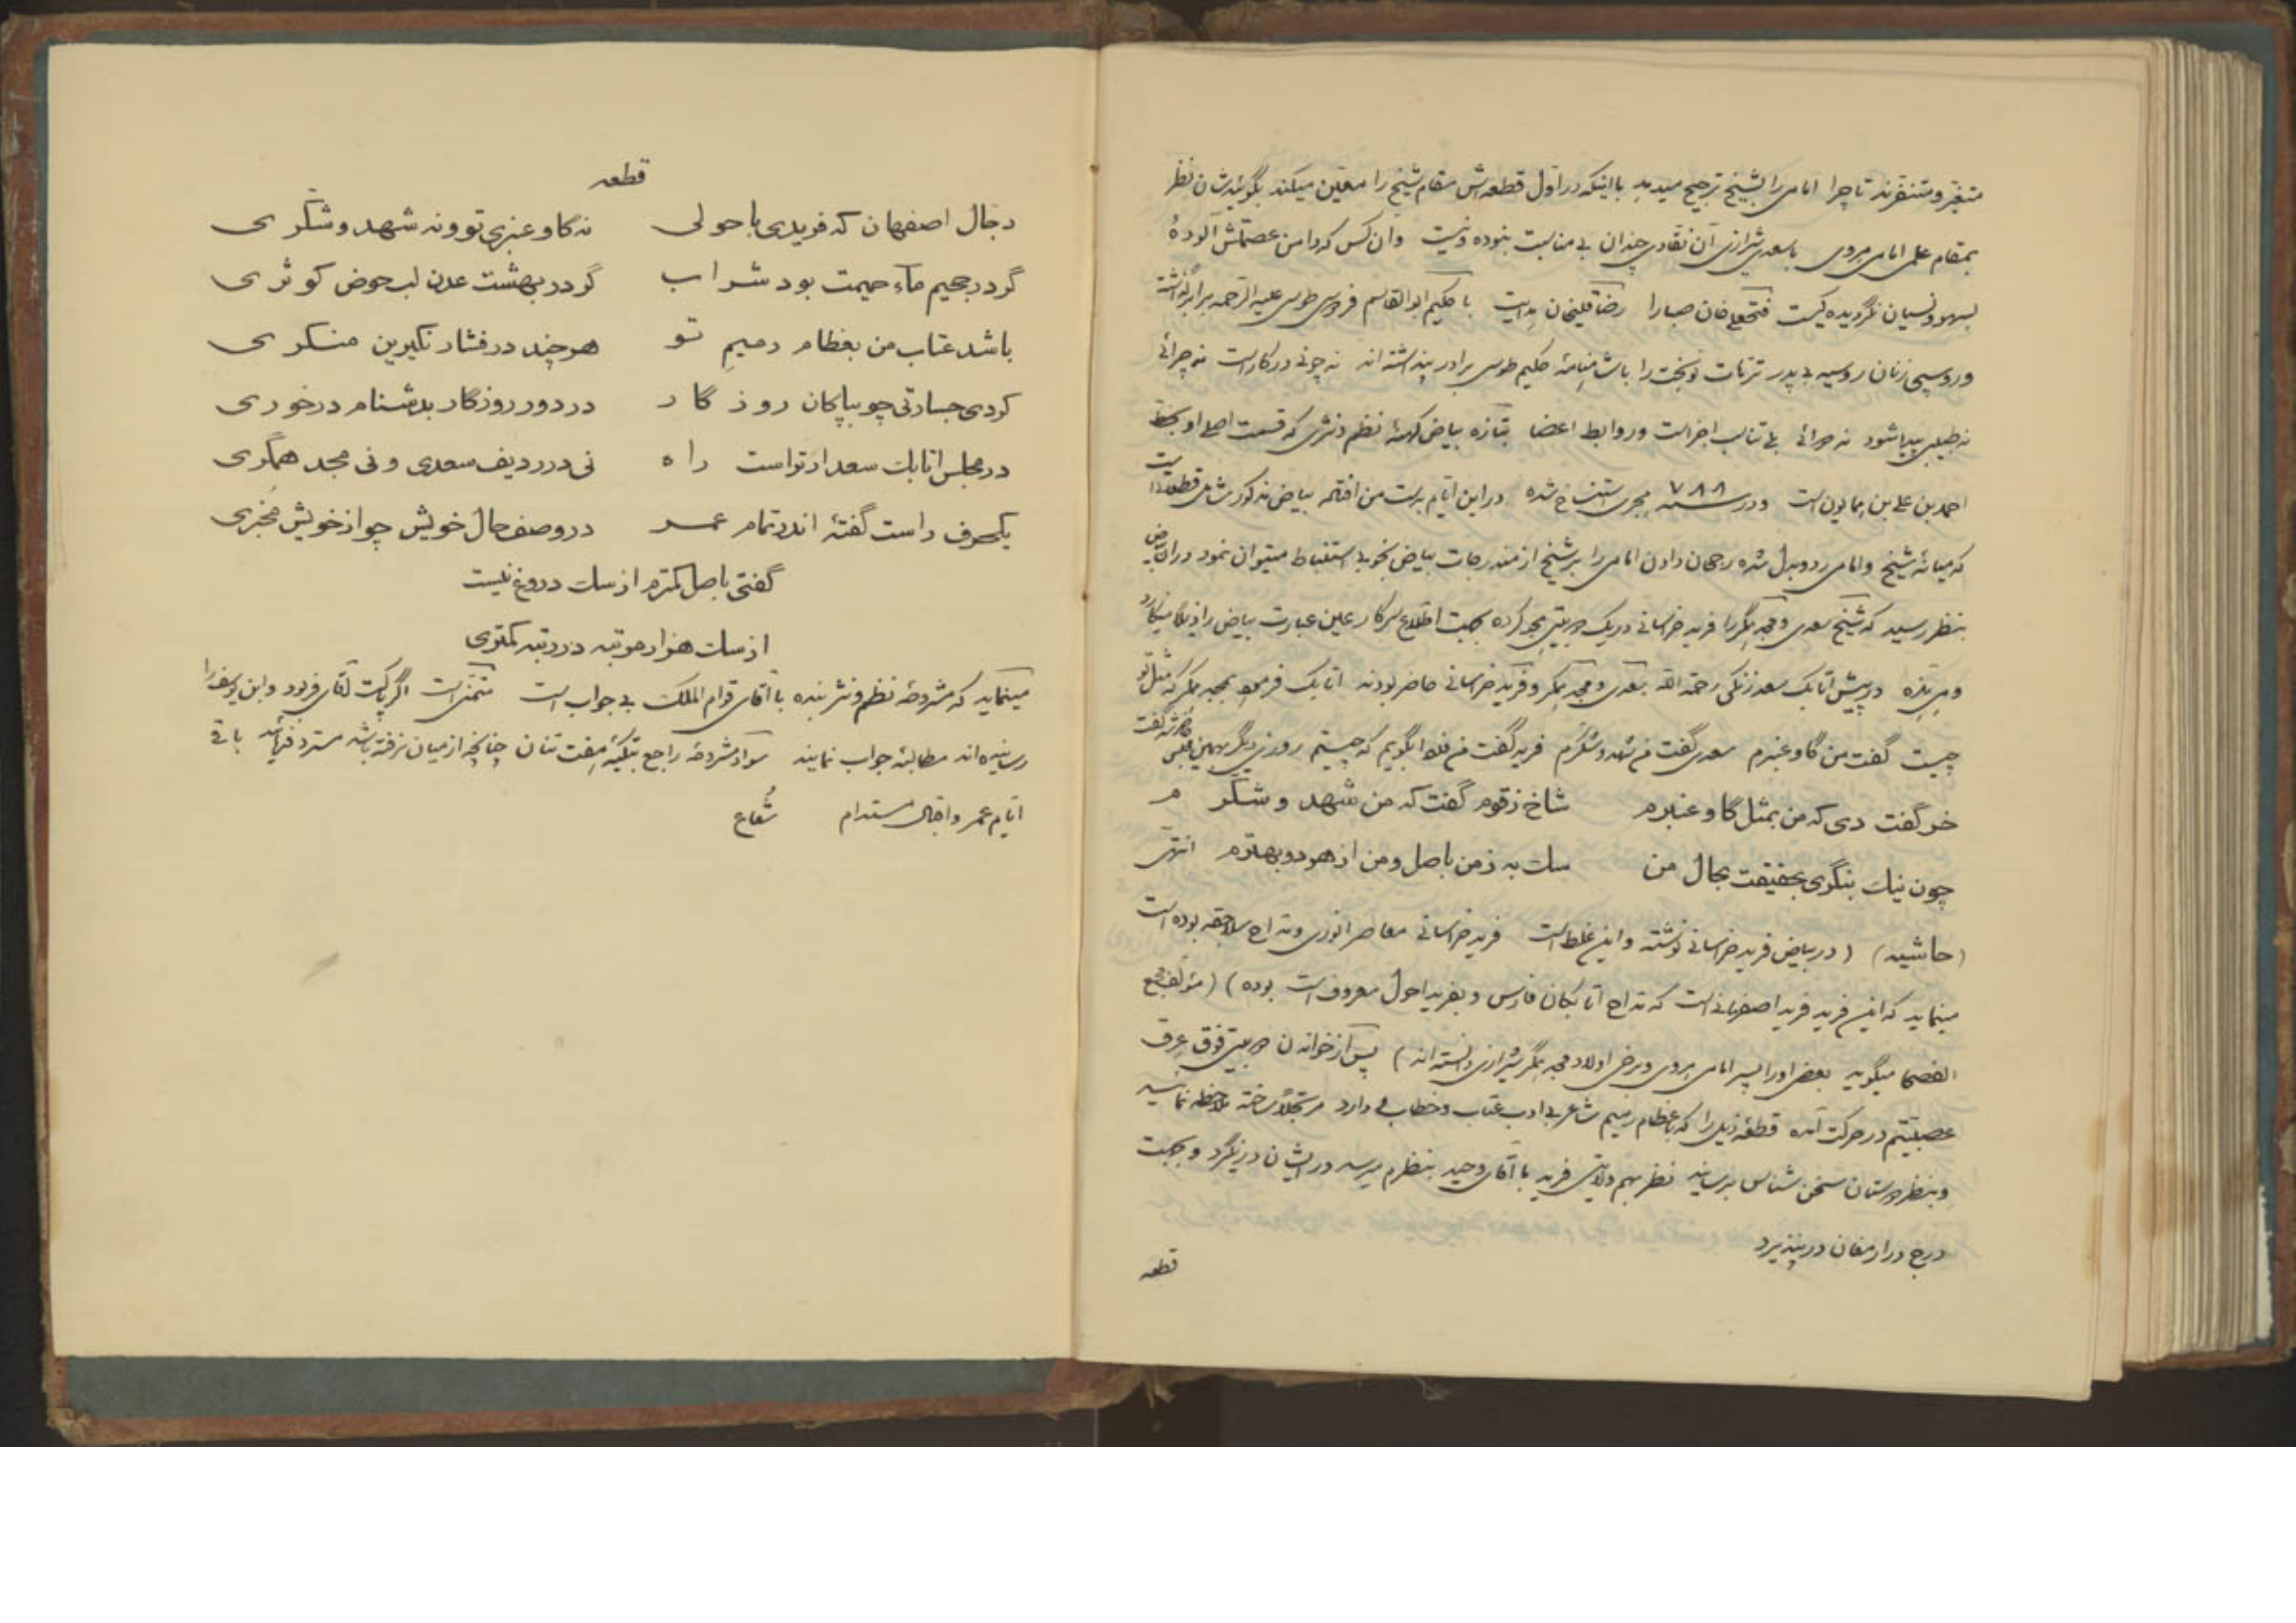 متغیر و متنفرند تا چرا امامی را بشیخ ترجیح میدهد با اینکه در اول قطعه‌اش مقام شیخ را معین میکند بگویند شان نظر
بمقام علمی امامی هروی با سعدی شیرازی آن نقادی چندان بی مناسبت نبوده و نیست و آن کس که دامن عصمتش آلودهٔ
بسهو و نسیان نگردیده کیست فتحعلی خان صبا را رضا قلیخان هدایت با حکیم ابوالقاسم فردوسی طوسی علیه الرحمه برابر
و روسپی زنان روسیه بی پدر ترهات نوبخت را با شاهنامهٔ حکیم طوسی برادر پنداشته اند نه چونی در کار است نه چرائی
نه طبیبی پیدا شود نه دوائی بلی تناسب اجزاست و روابط اعضا بتازه بیاض کهنهٔ نظم و نثری که قسمت اصلی او بخط
احمد بن علی بن همایون است و در سنه ۷۸۸ هجری استنساخ شده در این ایام بدست من افتاد بیاض مذکور شامل قطعاتی است
که میانهٔ شیخ و امامی رد و بدل شده رجحان دادن امامی را بر شیخ از مندرجات بیاض بخوبی استنباط میتوان نمود در آن بیاض
بنظر رسید که شیخ سعدی و مجد همگر را فرید خراسانی در یک دو بیتی هجو کرده بجهت اطلاع سرکار عین عبارت بیاض را ذیلا مینگارد
و هی هذه در پیش اتابک سعد زنگی رحمة الله سعدی و مجد همگر و فرید خراسانی حاضر بودند اتابک فرمود بمجد همگر که مثل تو
چیست گفت من گاو عنبرم سعدی گفت من شهد و شکرم فرید گفت من فردا بگویم که چیستم روز دیگر بهمین مجلس گفت
خر گفت دی که من بمثل گاو عنبرم شاخ زقوم گفت که من شهد و شکرم
چون نیک بنگری بحقیقت بحال من سک به ز من باصل و من از هر دو بهترم انتهی
(حاشیه) (در بیاض فرید خراسانی نوشته و این غلط است فرید خراسانی معاصر انوری و مداح سلاجقه بوده است
مینماید که این فرید فرید اصفهانی است که مداح اتابکان فارس و بفرید احول معروف است بوده) (مؤلف مجمع
الفصحا میگوید بعضی او را پسر امامی هروی و برخی اولاد مجد همگر شیرازی دانسته اند) پس از خواندن دو بیتی فوق عرق
عصبیتم در حرکت آمده قطعهٔ ذیل را که با عظام رمیم شاعر بی ادب عتاب و خطابی دارد مرتجلاً ساخته ملاحظه نمائید
و بنظر دوستان سخن شناس برسانید نظر بهم ولایتی فرید با آقای وحید بنظرم میرسد در ایشان در نگیرد و بجهت
درج در ارمغان در نپذیرد
قطعه
قطعه
دجال اصفهان که فریدی با حولی نه گاو عنبری تو و نه شهد و شکری
گر در جحیم ماء حمیمت بود شراب گر در بهشت عدن لب حوض کوثری
باشد عتاب من بعظام رمیم تو هر چند در فشار نکیرین منکری
کردی جسارتی چو بپاکان روزگار در دور روزگار بدشنام در خوری
در مجلس اتابک سعد ار تو است راه نی در ردیف سعدی و نی مجد همگری
یکحرف راست گفتهٔ اندر تمام عمر در وصف حال خویش چو از خویش مخبری
گفتی باصل کمترم از سک دروغ نیست
از سک هزار مرتبه در رتبه کمتری
مینماید که مشروحهٔ نظم و نثر بنده با آقای قوام الملک بی جواب است متمنی است اگر پاکت آقای فربود و ابن یوسف را
رسانیده اند مطالبهٔ جواب نمایند سواد مشروحهٔ راجع بتکیهٔ هفت تنان چنانچه از میان نرفته باشد مسترد فرمائید باقی
ایام عمر و اقبال مستدام شعاع